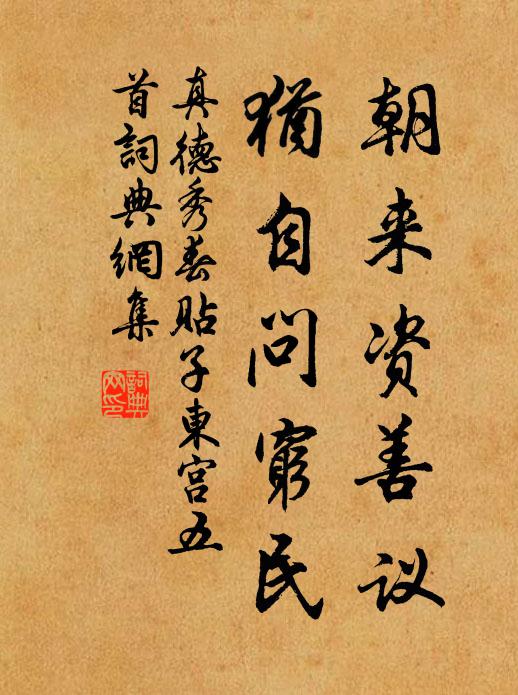 朝来资善议
犹自问穷民
真德秀春贴子东宫五
首词典网集
词典
网印